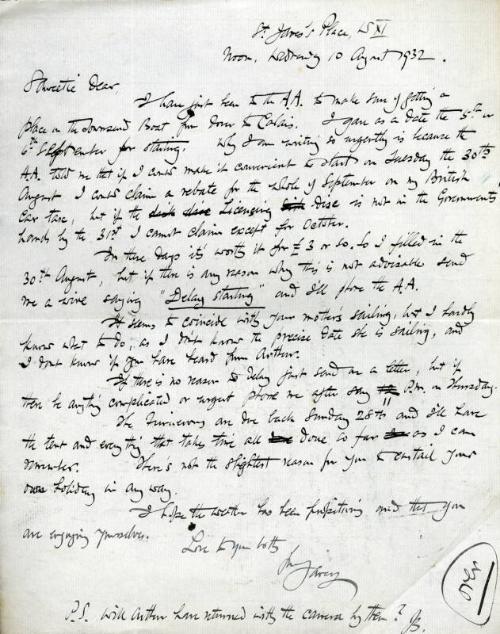 St. James's Place, W XI
Noon, Wednesday 10 August 1932.
Sweetie Dear,
I have just been to the A.A. to make sure of getting a
place on the Townsend Boat from Dover to Calais. I gave as a date the 5th or
6th September for starting. Why I am writing so urgently is because the
A.A. told me that if I could make it convenient to start on Tuesday the 30th
August I could claim a rebate for the whole of September on my British
Car tax, but if the Licencing disc is not in the Government's
hands by the 31st I cannot claim except for October.
In these days it's worth it for £3 or so. So I filled in the
30th August, but if there is any reason why this is not advisable send
me a wire saying "Delay starting" and I'll phone the A.A.
It seems to coincide with your mothers sailing, but I hardly
know what to do, as I don't know the precise date she is sailing, and
I don't know if you have heard from Arthur.
If there is no reason to delay just send me a letter, but if
there be anything complicated or urgent phone me after say 11 P.M. on Thursday.
The are due back Sunday 28th and I'll have
the tent and everything that takes time all done so far as I can
remember. There's not the slightest reason for you to curtail your
holiday in any way.
I hope the weather has been propitious and that you
are enjoying yourselves.
Love to you both
P.S. Will Arthur have returned with the camera by then?